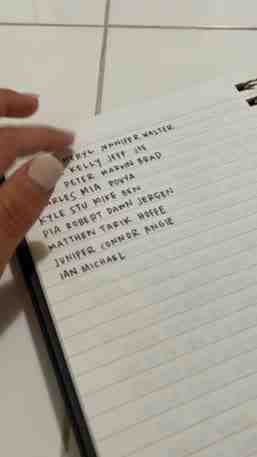 JENNIFER WALTER
KELLY JEFF
PETER MARVIN BRAD
MIA POOYA
KYLE STU MIKE BEN
PIA ROBERT DAWN JERGEN
MATTHEW TARIK HOPPE
JUNIPER CONNOR ANGIE
IAN MICHAEL